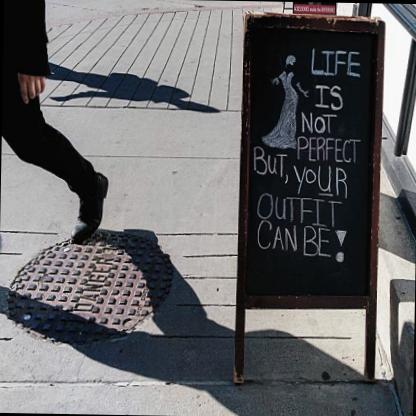 LIFE
IS
NOT
PERFECT
BUT, YOUR
OUTFIT
CAN BE!